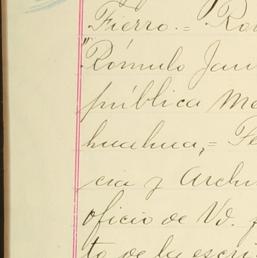 Fierro.= Ro
"Rómulo Jau
pública Me
huahua,= Se
cia y Archi
oficio de Vd. 
to de la escri